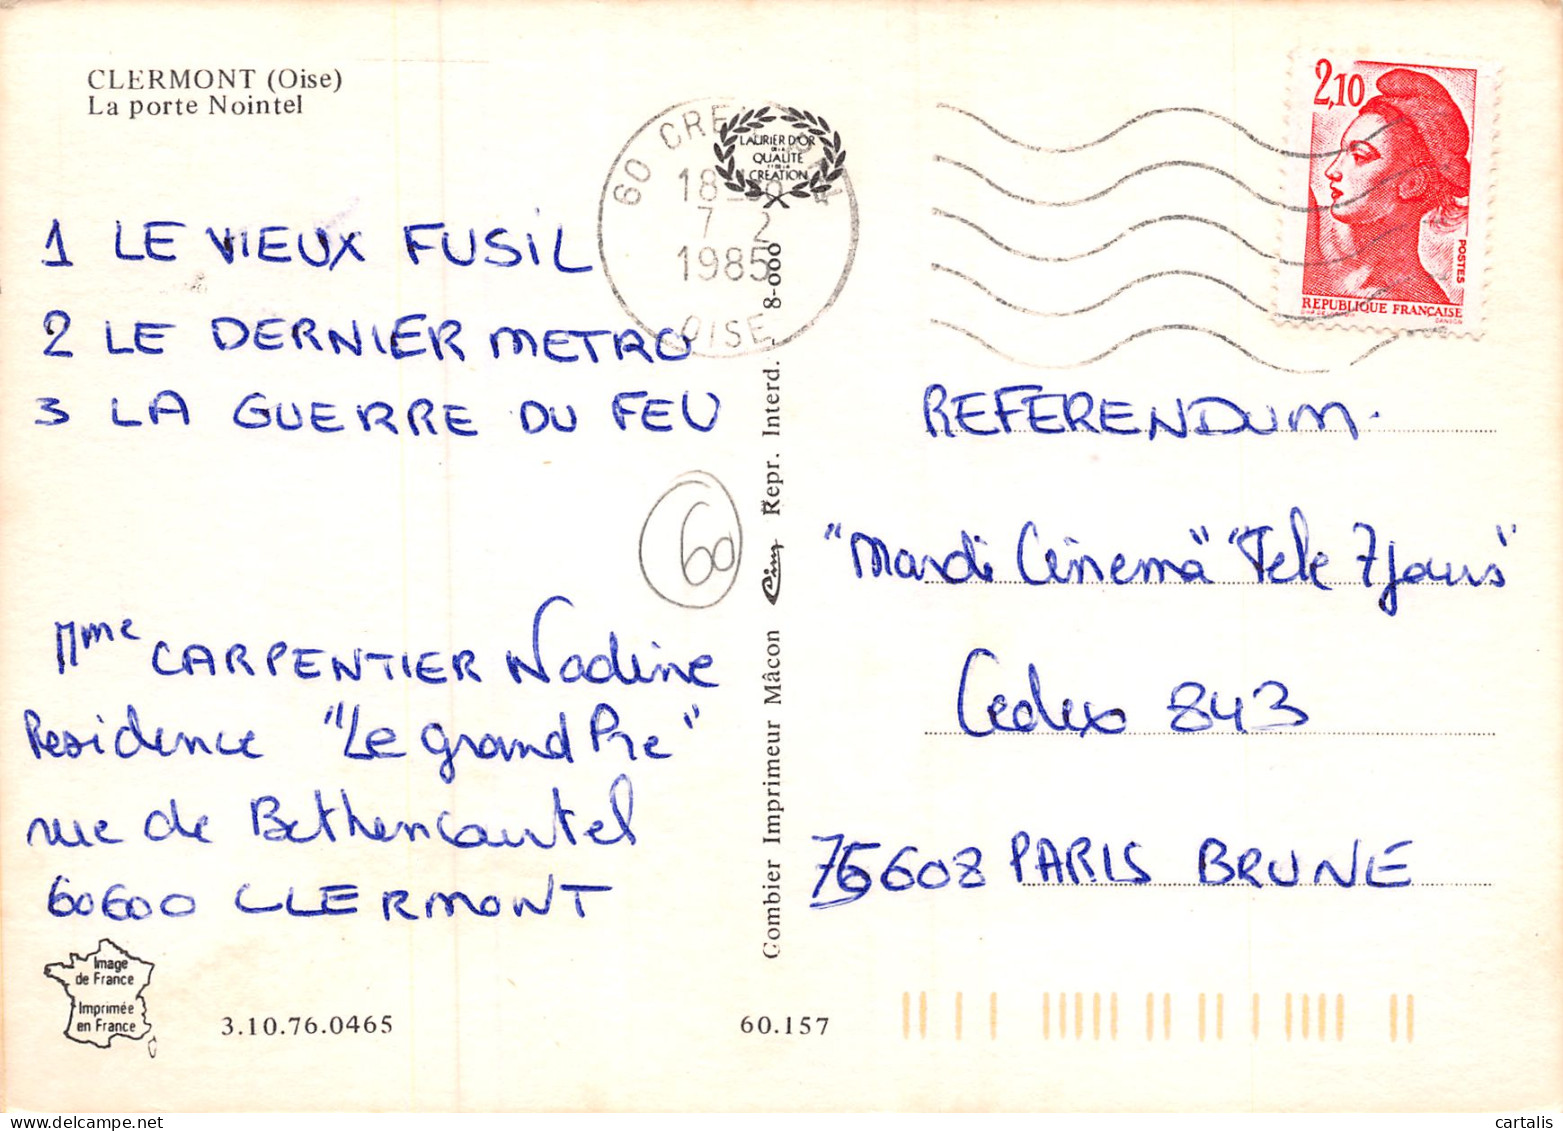 CLERMONT (Oise)
La porte Nointel
1 LE VIEUX FUSIL
2 LE DERNIER METRO
3 LA GUERRE DU FEU
60
Mme CARPENTIER Nadine
Residence "Le grand Pre"
rue de Bethencourtel
60600 CLERMONT
Image
de France
Imprimée
en France
3.10.76.0465
60.157
LAURIER D'OR
DE LA
QUALITÉ
ET DE LA
CRÉATION
18
7 2
1985
OISE
Combier Imprimeur Mâcon Cim Repr. Interd. - 8-000
2,10
POSTES
REPUBLIQUE FRANÇAISE
REFERENDUM.
"Mardi Cinema" "Tele 7 jours"
Cedex 843
75608 PARIS BRUNE
cartalis